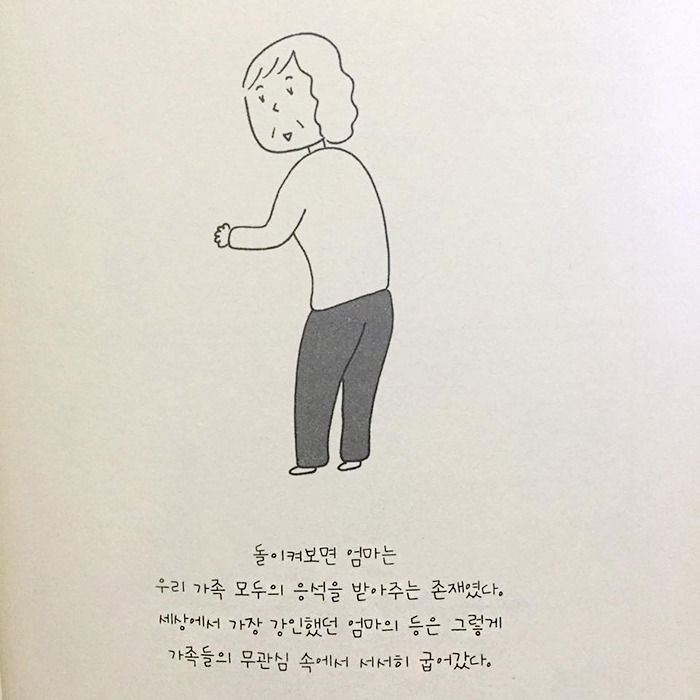 돌이켜보면 엄마는
우리 가족 모두의 응석을 받아주는 존재였다.
세상에서 가장 강인했던 엄마의 등은 그렇게
가족들의 무관심 속에서 서서히 굽어갔다.